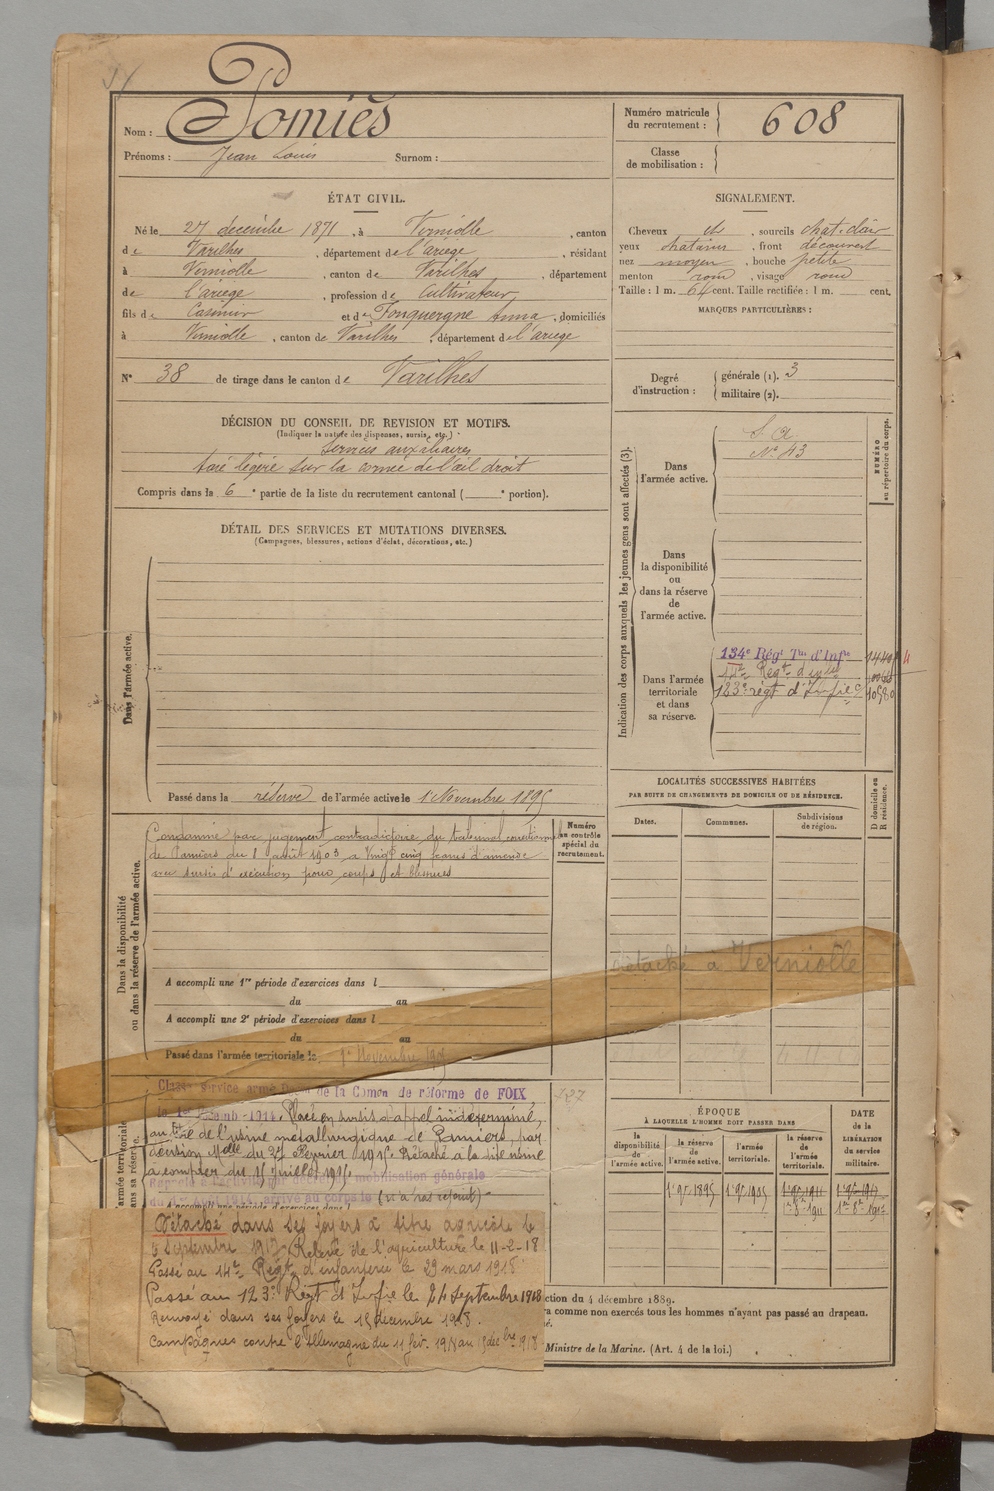 Nom : Pomiès
Prénoms : Jean Louis Surnom :
Numéro matricule du recrutement : 608
Classe de mobilisation :
ÉTAT CIVIL.
Né le 27 décembre 1871, à Verniolle, canton
de Varilhes, département de l'ariege, résidant
à Verniolle, canton de Varilhes, département
de l'ariege, profession de Cultivateur
fils de Casimir et de Fonquergne Anna, domiciliés
à Verniolle, canton de Varilhes, département de l'ariege
N° 38 de tirage dans le canton de Varilhes
SIGNALEMENT.
Cheveux ch, sourcils chat. clair
yeux chatains, front découvert
nez moyen, bouche petite
menton rond, visage rond
Taille : 1 m. 64 cent. Taille rectifiée : 1 m. cent.
MARQUES PARTICULIÈRES :
Degré d'instruction : générale (1). 3
militaire (2).
DÉCISION DU CONSEIL DE REVISION ET MOTIFS.
(Indiquer la nature des dispenses, sursis, etc.)
Services auxiliaires
taie légère sur la cornée de l'œil droit
Compris dans la 6e partie de la liste du recrutement cantonal ( e portion).
DÉTAIL DES SERVICES ET MUTATIONS DIVERSES.
(Campagnes, blessures, actions d'éclat, décorations, etc.)
Dans l'armée active.
Passé dans la réserve de l'armée active le 1er Novembre 1895
Indication des corps auxquels les jeunes gens sont affectés (3).
NUMÉRO au répertoire du corps.
Dans l'armée active.
S. A
N° 43
Dans la disponibilité ou dans la réserve de l'armée active.
Dans l'armée territoriale et dans sa réserve.
134e Régt Tal d'Infie
14e Régt d'infie
123e régt d'Infie
10580
LOCALITÉS SUCCESSIVES HABITÉES
PAR SUITE DE CHANGEMENTS DE DOMICILE OU DE RÉSIDENCE.
Dates.
Communes.
Subdivisions de région.
D domicile ou R résidence.
Détaché à Verniolle
Dans la disponibilité ou dans la réserve de l'armée active.
Numéro au contrôle spécial du recrutement.
Condamné par jugement contradictoire du tribunal correctionnel
de Pamiers du 8 août 1903 a Vingt cinq francs d'amende
avec sursis d'exécution pour coups et blessures
A accompli une 1re période d'exercices dans l
du au
A accompli une 2e période d'exercices dans l
du au
Passé dans l'armée territoriale le 1er Novembre 1905
armée territoriale
dans sa réserve.
Classé service armé de la Comon de réforme de FOIX
1914. Placé en sursis d'appel indéterminé,
au titre de l'usine métallurgique de Pamiers, par
décision Melle du 27 Fevrier 1915. Détaché à la dite usine
à compter du 15 juillet 1915
Rappelé à l'activité par décret de mobilisation générale
du 1er Août 1914, arrivé au corps le (n'a pas rejoint)
Détaché dans ses foyers à titre agricole le
Septembre 1917. Relevé de l'agriculture le 11-2-18
Passé au 14e Régt d'infanterie le 29 mars 1918
Passé au 123e Régt d'Infie le 24 septembre 1918
Renvoyé dans ses foyers le 15 décembre 1918.
Campagnes contre l'Allemagne du 11 fév. 1918 au 15 décbre 1918
ÉPOQUE
À LAQUELLE L'HOMME DOIT PASSER DANS
la disponibilité de l'armée active.
la réserve de l'armée active.
l'armée territoriale.
la réserve de l'armée territoriale.
DATE de la LIBÉRATION du service militaire.
1er 9bre 1895
1er 9bre 1905
1er 9bre 1911
1er 9bre 1917
1er 8bre 1911
1er 8bre 1917
ction du 4 décembre 1889.
ra comme non exercés tous les hommes n'ayant pas passé au drapeau.
Ministre de la Marine. (Art. 4 de la loi.)